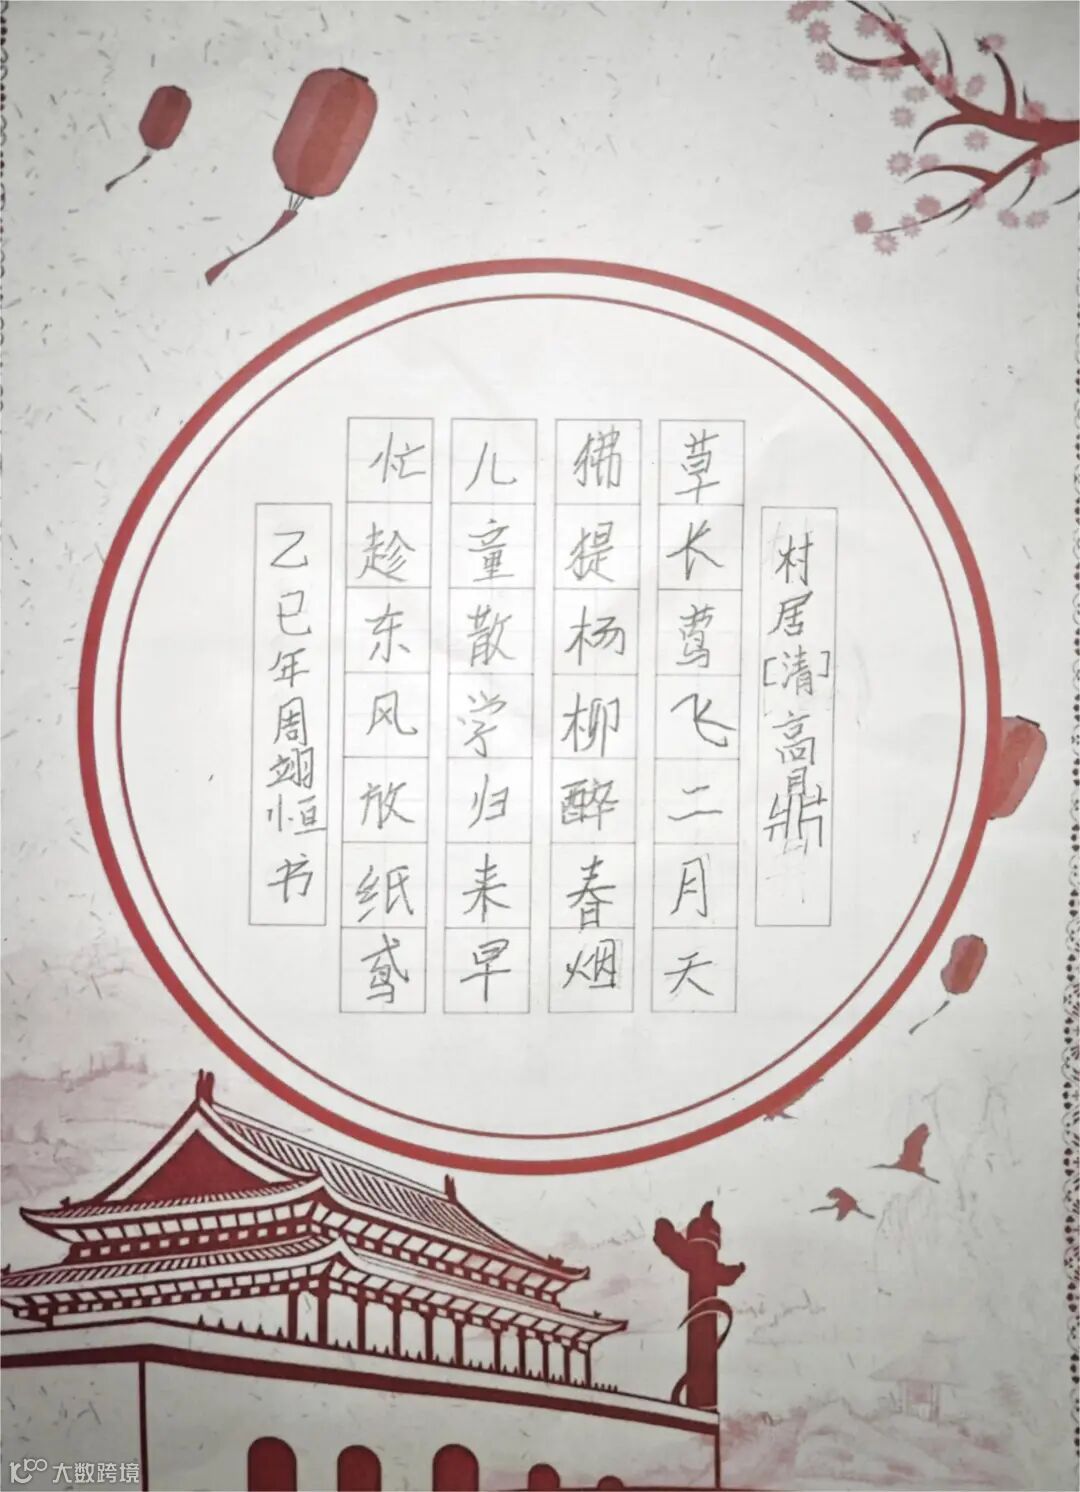 村居[清]高鼎
草长莺飞二月天
拂提杨柳醉春烟
儿童散学归来早
忙趁东风放纸鸢
乙巳年周翊恒书
大数跨境